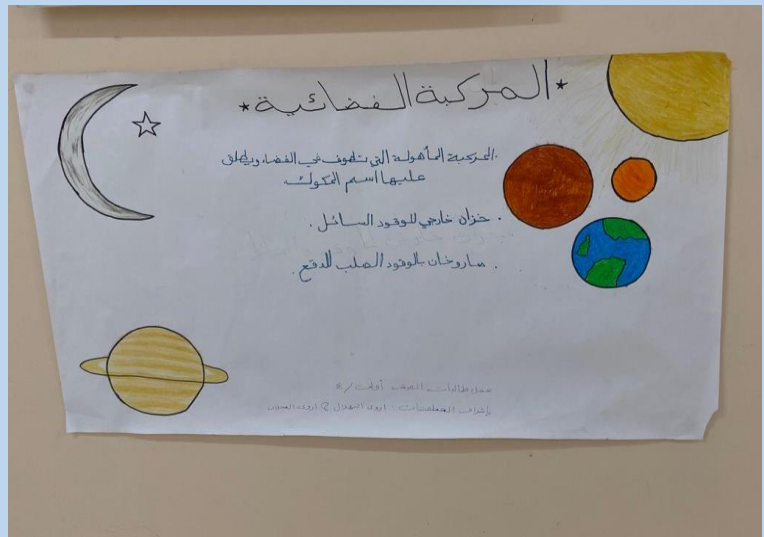 * المركبة الفضائية *
. المركبة المأهولة التي تطوف في الفضاء ويطلق
عليها اسم المكوك
. خزان خارجي للوقود السائل .
. صاروخان بالوقود الصلب للدفع .
عمل طالبات الصف أولى /
بإشراف المعلمات : اروى الهلال & اروى